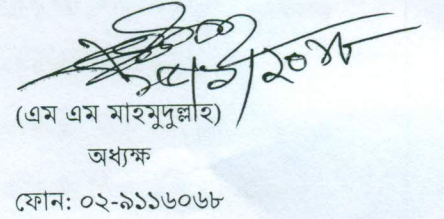 (এম এম মাহমুদুল্লাহ)
অধ্যক্ষ
ফোন: ০২-৯১১৬০৬৮